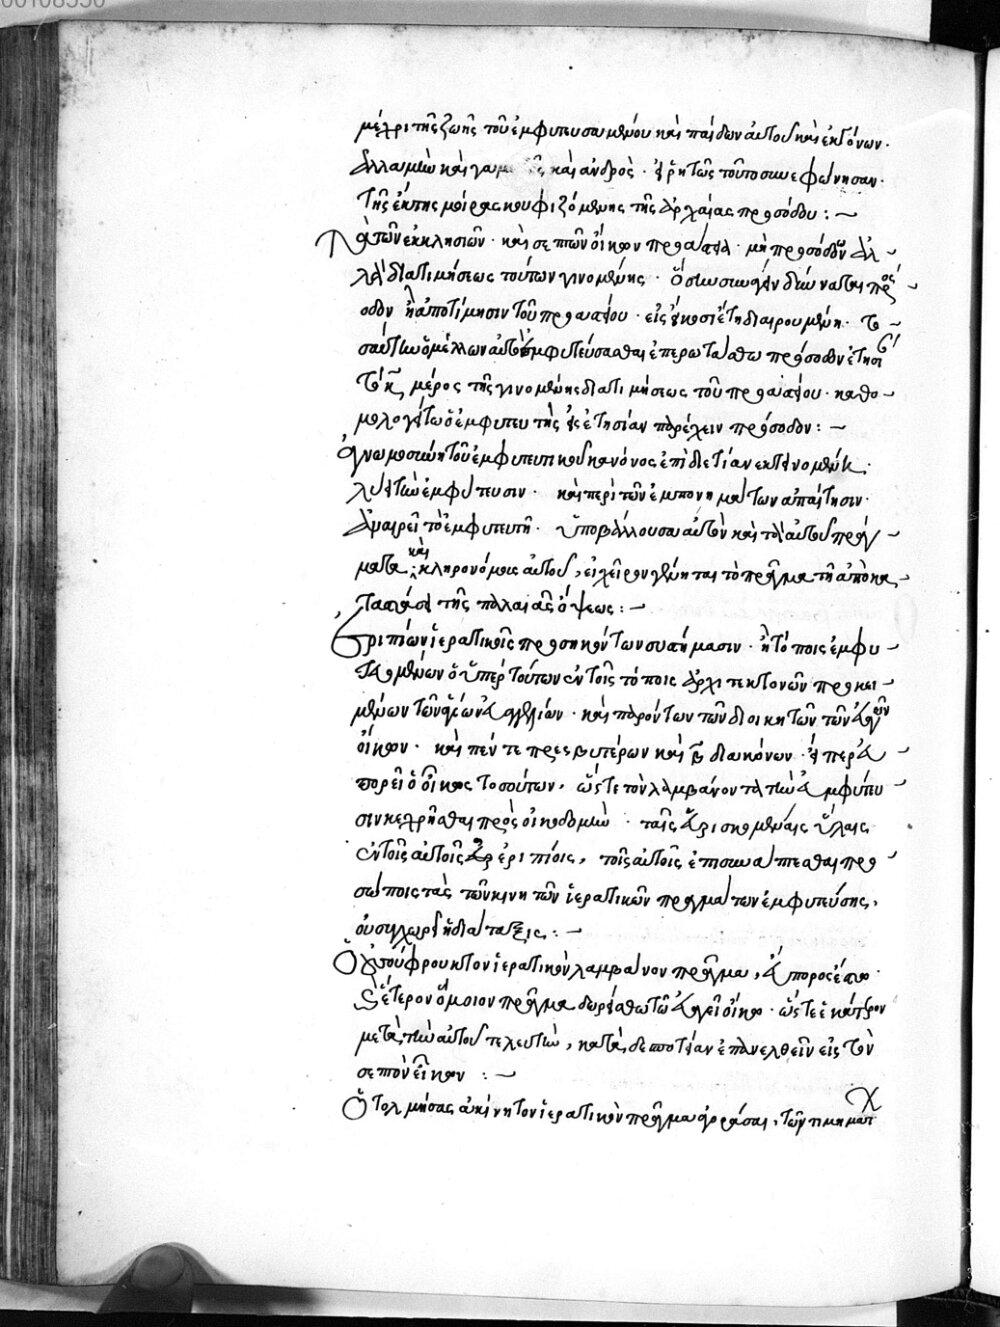 μέχρι τῆς ζωῆς τοῦ ἐμφυτευσαμένου καὶ παίδων αὐτοῦ καὶ ἐκγόνων.
ἀλλὰ μὴν καὶ καὶ ἀνδρὸς· εἰ ῥητῶς τοῦτο συνεφώνησαν.
τῆς ἕκτης μοίρας κουφιζομένης τῆς ἀρχαίας προσόδου :~
τῶν ἐκκλησιῶν· καὶ σεπτῶν οἴκων προάστεια· μὴ προσόδων ἀλ-
λὰ διατιμήσεως τούτων γινομένης· πρόσ
οδον ἢ ἀποτίμησιν τοῦ προαστείου· εἰς εἴκοσι ἔτη διαιρουμένη· το-
σαύτην ὁ μέλλων αὐτὸ ἐμφυτεύσασθαι ἐπερωτάσθω πρόσοδον ἐτησί
τὸ κ̄ μέρος τῆς γινομένης διατιμήσεως τοῦ προαστείου· καθο-
μολογείτω ὁ ἐμφυτευτὴς εἰς ἐτησίαν παρέχειν πρόσοδον :~
ἀγνωμοσύνη τοῦ ἐμφυτευτικοῦ κανόνος ἐπὶ διετίαν ἐκτεινομένη
λύει τὴν ἐμφύτευσιν· καὶ περὶ τῶν ἐμπονημάτων ἀπαίτησιν·
ἀφαιρεῖ τὸ ἐμφυτευτῇ· ὑποβάλλουσα αὐτὸν καὶ τὰ αὐτοῦ πράγ-
ματα καὶ κληρονόμους αὐτοῦ, εἰ χεῖρον γένηται τὸ πρᾶγμα τῇ ἀποκα-
ταστάσει τῆς παλαιᾶς ὄψεως :~
Ἐριπίων ἱερατικοῖς προσηκόντων συστήμασιν· ἢ τόποις ἐμφυ-
τευομένων ὑπὲρ τούτων ἐν τοῖς τόποις ἀρχιτεκτονῶν προκει-
μένων τῶν ἁγίων εὐαγγελίων· καὶ παρόντων τῶν διοικητῶν τῶν εὐαγῶν
οἴκων· καὶ πέντε πρεσβυτέρων καὶ β̄ διακόνων· εἴπερ εὐ-
πορεῖ ὁ οἶκος τοσούτων, ὥστε τὸν λαμβάνοντα τὴν ἐμφύτευ-
σιν κεχρῆσθαι πρὸς οἰκοδομὴν· ταῖς εὑρισκομέναις ὕλαις
ἐν τοῖς αὐτοῖς ἐριπίοις, τοῖς αὐτοῖς ἐπισυνάπτεσθαι προ-
σώποις τὰς τῶν κινητῶν ἱερατικῶν πραγμάτων ἐμφυτεύσεις,
οὐ συγχωρεῖ ἡ διάταξις :~
Ὁ χρησούφρουκτον ἱερατικὸν λαμβάνον πρᾶγμα, εὔπορος ἔστω·
ἕτερον ὅμοιον πρᾶγμα δωρείσθω τῷ εὐαγεῖ οἴκῳ· ὥστε ἑκάτερον
μετὰ τὴν αὐτοῦ τελευτὴν, κατὰ δεσποτείαν ἐπανελθεῖν εἰς τὸν
σεπτὸν οἶκον :~
Ὁ τολμήσας ἀκίνητον ἱερατικὸν πρᾶγμα ἀγοράσαι, τῶν τιμημάτ